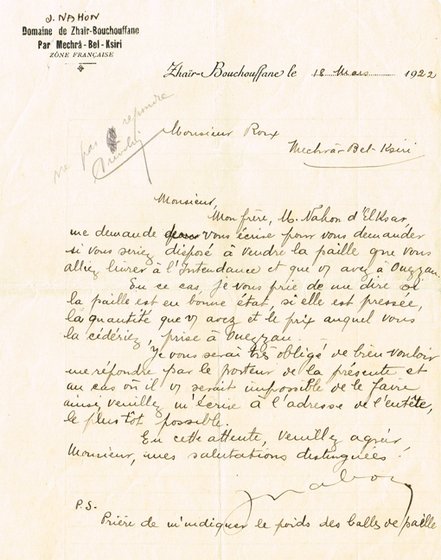 J. NAHON
Domaine de Zhaïr-Bouchouffane
Par Mechrâ-Bel-Ksiri
ZÔNE FRANÇAISE
Zhaïr-Bouchouffane le 18 Mars 1922
ne pas repondre
Monsieur Roux
Mechrâ-Bel-Ksiri
Monsieur,
Mon frère, M. Nahon d'ElKsar
me demande vous écrise pour vous demander
si vous seriez disposé à vendre la paille que vous
alliez livrer à l'Intendance et que vs avez à Ouezzan.
En ce cas, je vous prie de me dire si
la paille est en bonne état, si elle est pressée,
la quantité que vs avez et le prix auquel vous
la cédériez, prise à Ouezzan.
Je vous serai très obligé de bien vouloir
me répondre par le porteur de la présente et
au cas où il vs serait impossible de le faire
ainsi, veuillez m'écrire à l'adresse de l'entête,
le plus tôt possible.
En cette attente, veuillez agréer
Monsieur, mes salutations distinguées.
J Nahon
P.S.
Prière de m'indiquer le poids des balles de paille